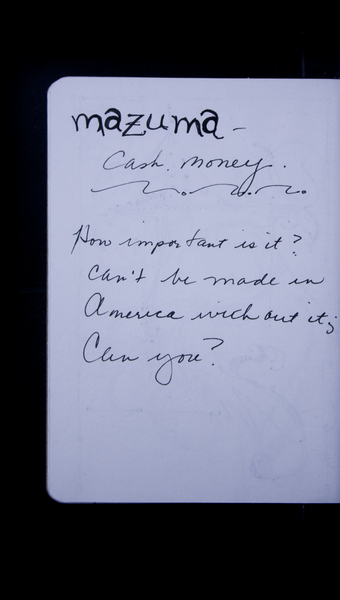 mazuma -
Cash. Money.
How important is it?
Can't be made in
America without it;
Can you?